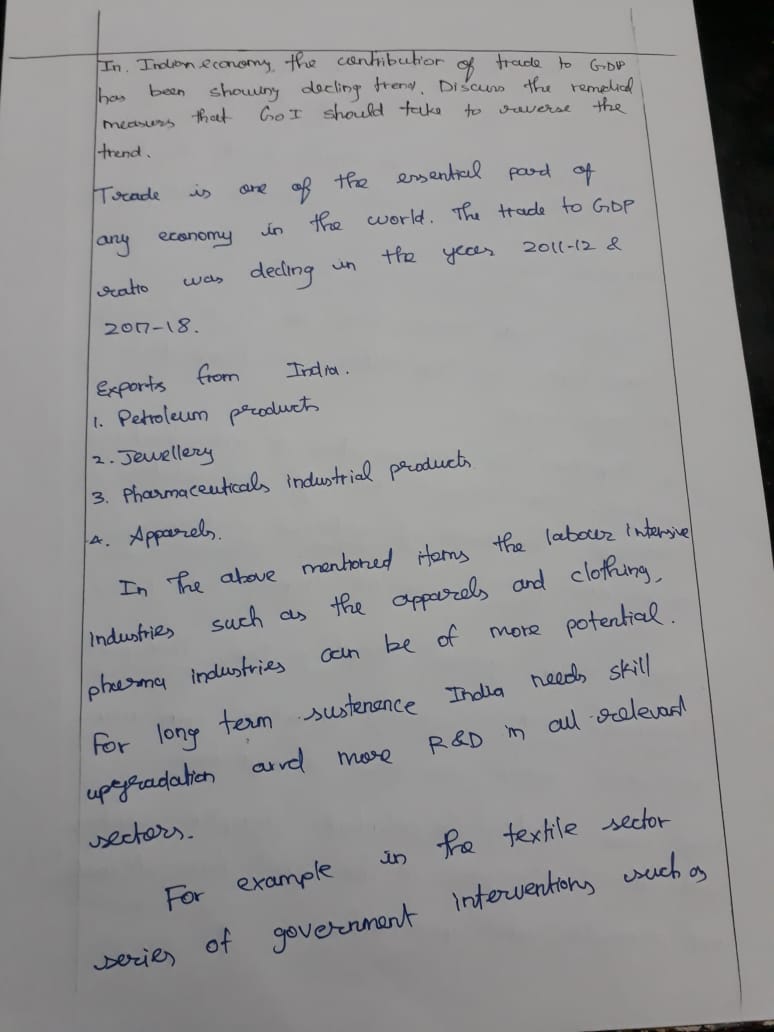 In Indian economy, the contribution of trade to GDP
has been showing decling trend. Discuss the remedial
measures that GoI should take to reverse the
trend.
Trade is one of the essential part of
any economy in the world. The trade to GDP
ratio was decling in the years 2011-12 &
2017-18.
Exports from India.
1. Petroleum products
2. Jewellery
3. Pharmaceuticals industrial products
4. Apparels.
In the above mentioned items the labour intensive
industries such as the apparels and clothing,
pharma industries can be of more potential.
For long term sustenance India needs skill
upgradation and more R&D in all relevant
sectors.
For example in the textile sector
series of government interventions such as